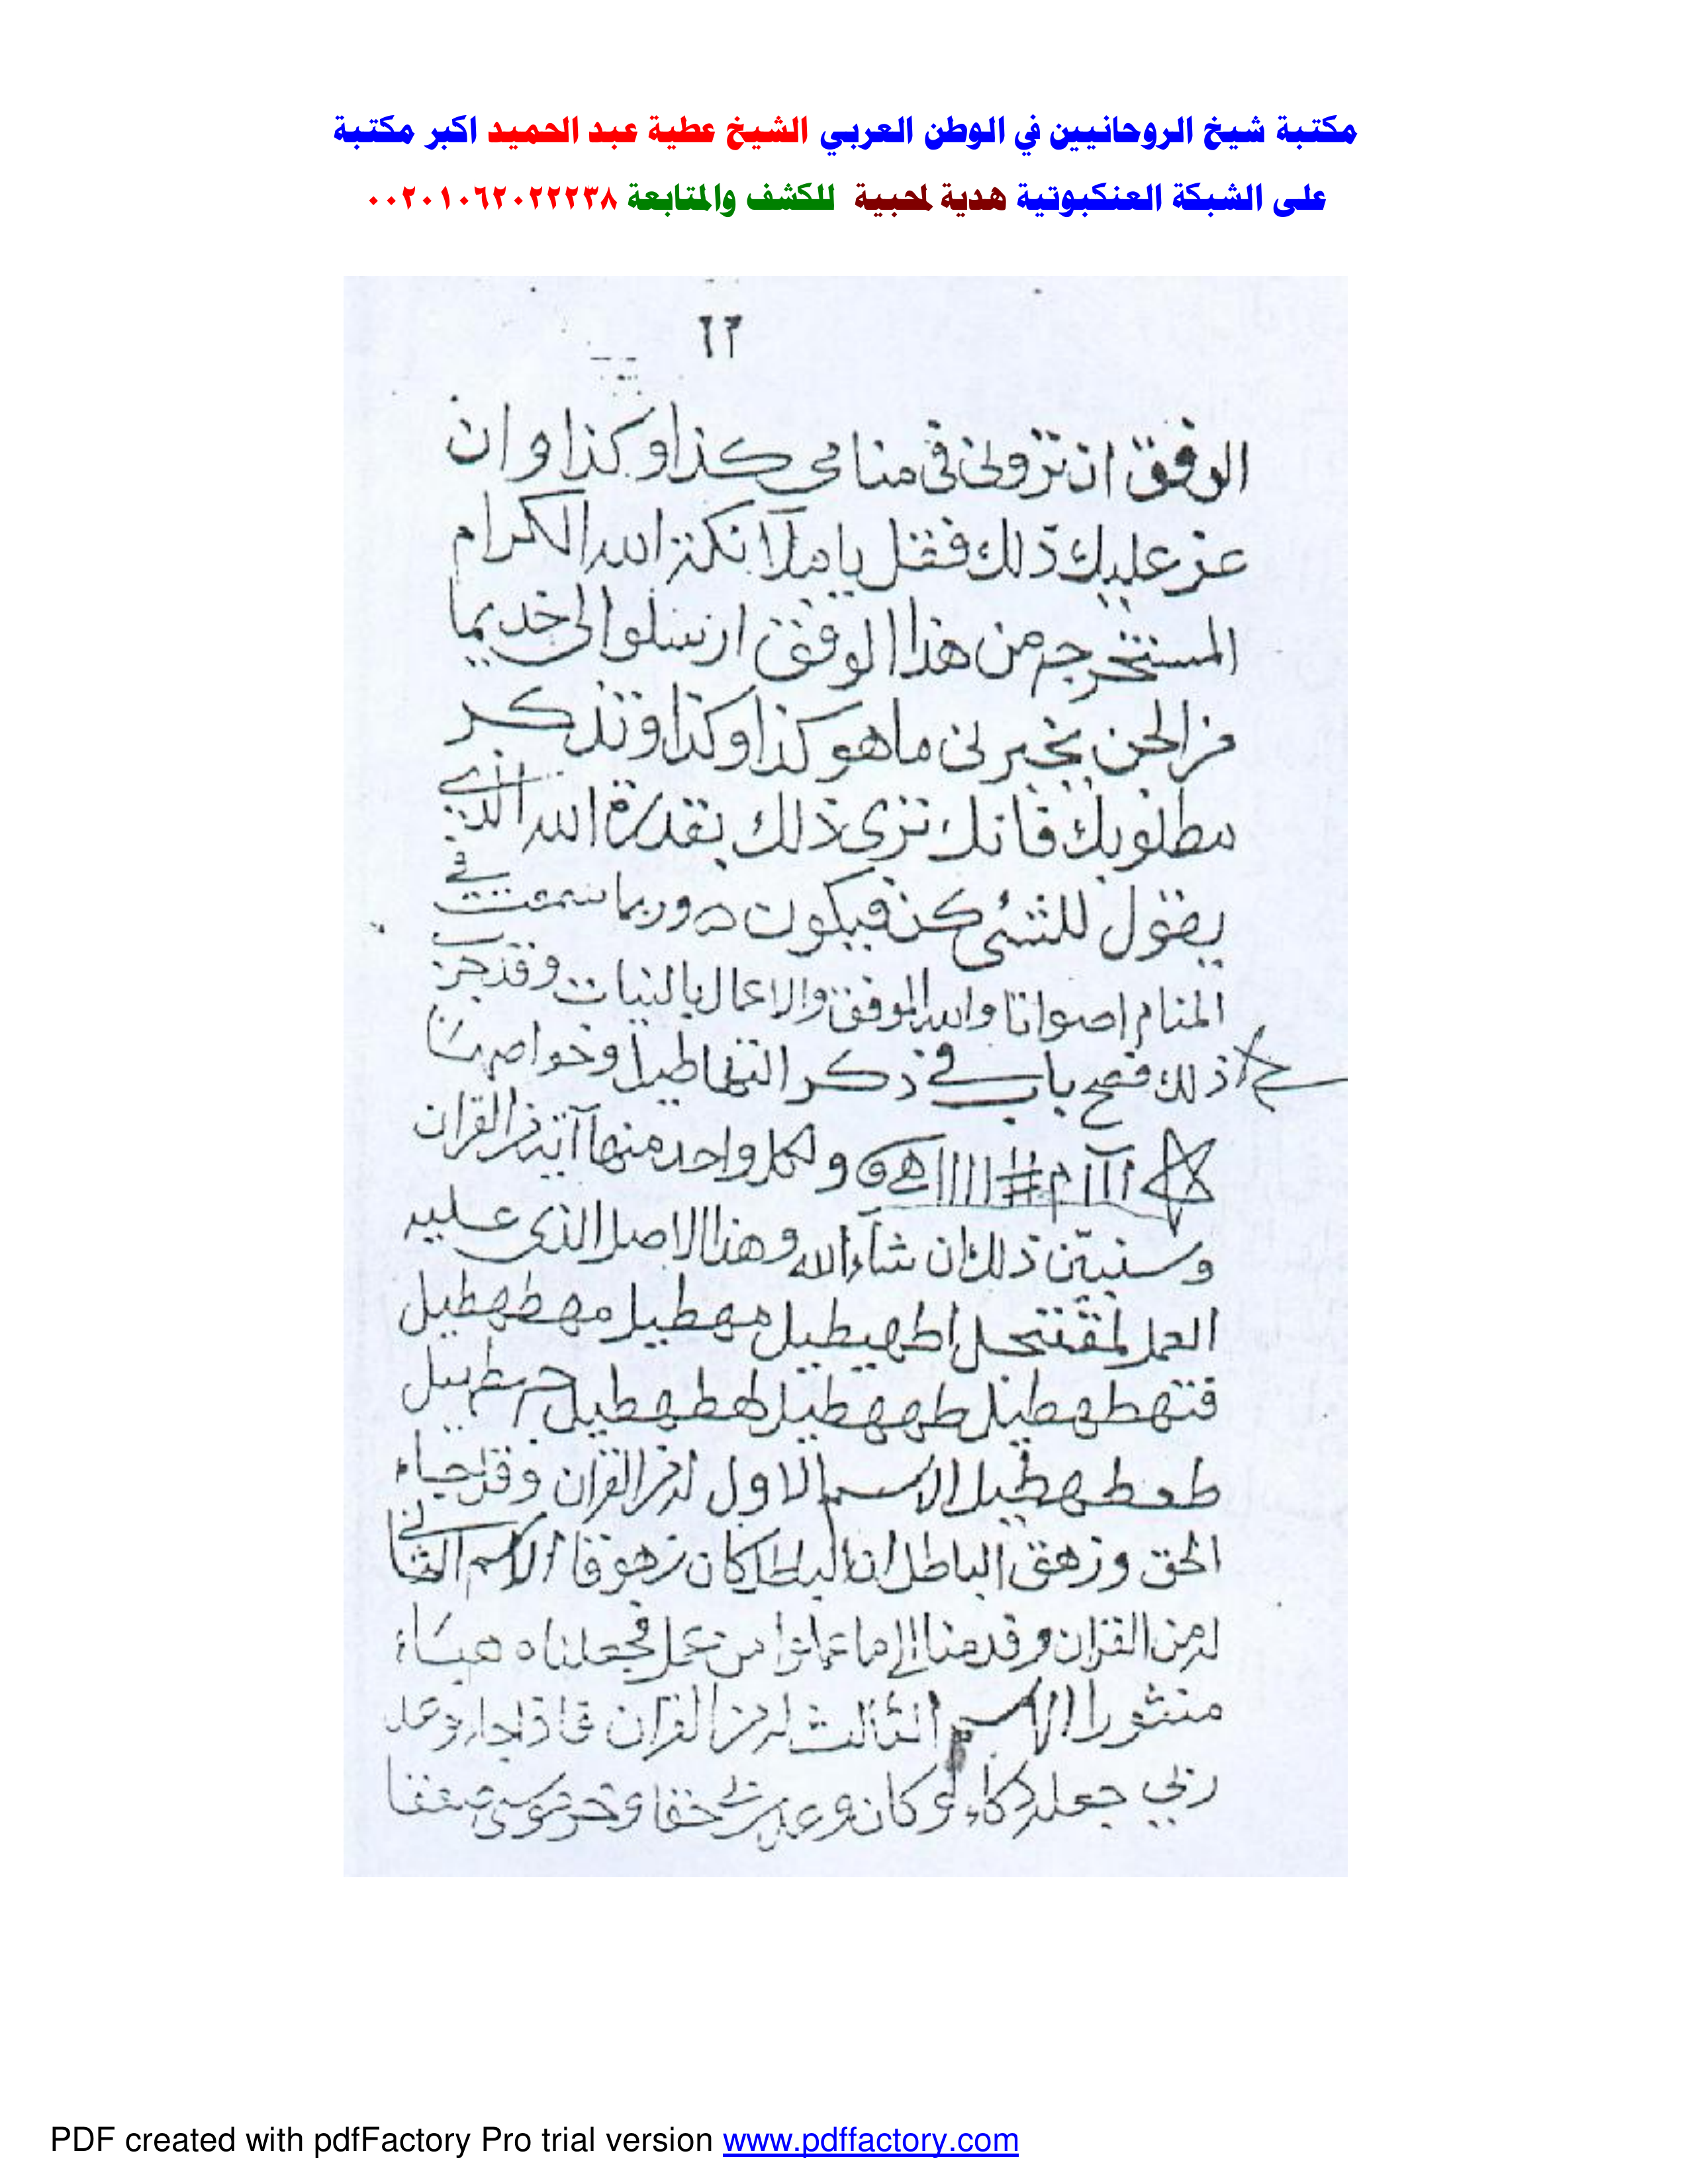 مكتبة شيخ الروحانيين في الوطن العربي الشيخ عطية عبد الحميد اكبر مكتبة
على الشبكة العنكبوتية هدية لمحبية للكشف والمتابعة ٠٠٢٠١٠٦٢٠٢٢٢٣٨
٦٢
الوفق ان ترونى فى منامى كذا وكذا وان
عز عليك ذلك فقل يا ملآئكة الله الكرام
المستخرجه من هذا الوفق ارسلوا الى خديما
من الجن يخبرنى ما هو كذا وكذا وتذكر
مطلوبك فانك ترى ذلك بقدرة الله الذي
يقول للشئ كن فيكون وربما سمعت في
المنام اصواتا والله الموفق والاعمال بالنيات وقد جرب
ذلك فصح باب في ذكر التهاطيل وخواصها
ااا م # اااا ه و ولكل واحد منها آية من القران
وسنبين ذلك ان شآء الله وهذا الاصل الذى عليه
العمل لمقفنجل اطهيطيل مهطيل مهطهطيل
فتهطهطيل طهطيل لهطهطيل
الاسم الاول له من القران وقل جاء
الحق وزهق الباطل ان الباطل كان زهوقا الاسم الثاني
له من القران وقدمنا إلى ما عملوا من عمل فجعلناه هباء
منثورا الاسم الثالث له من القران فاذا جاء وعد
ربي جعله دكاء وكان وعد ربي حقا وخر موسى صعقا
PDF created with pdfFactory Pro trial version www.pdffactory.com